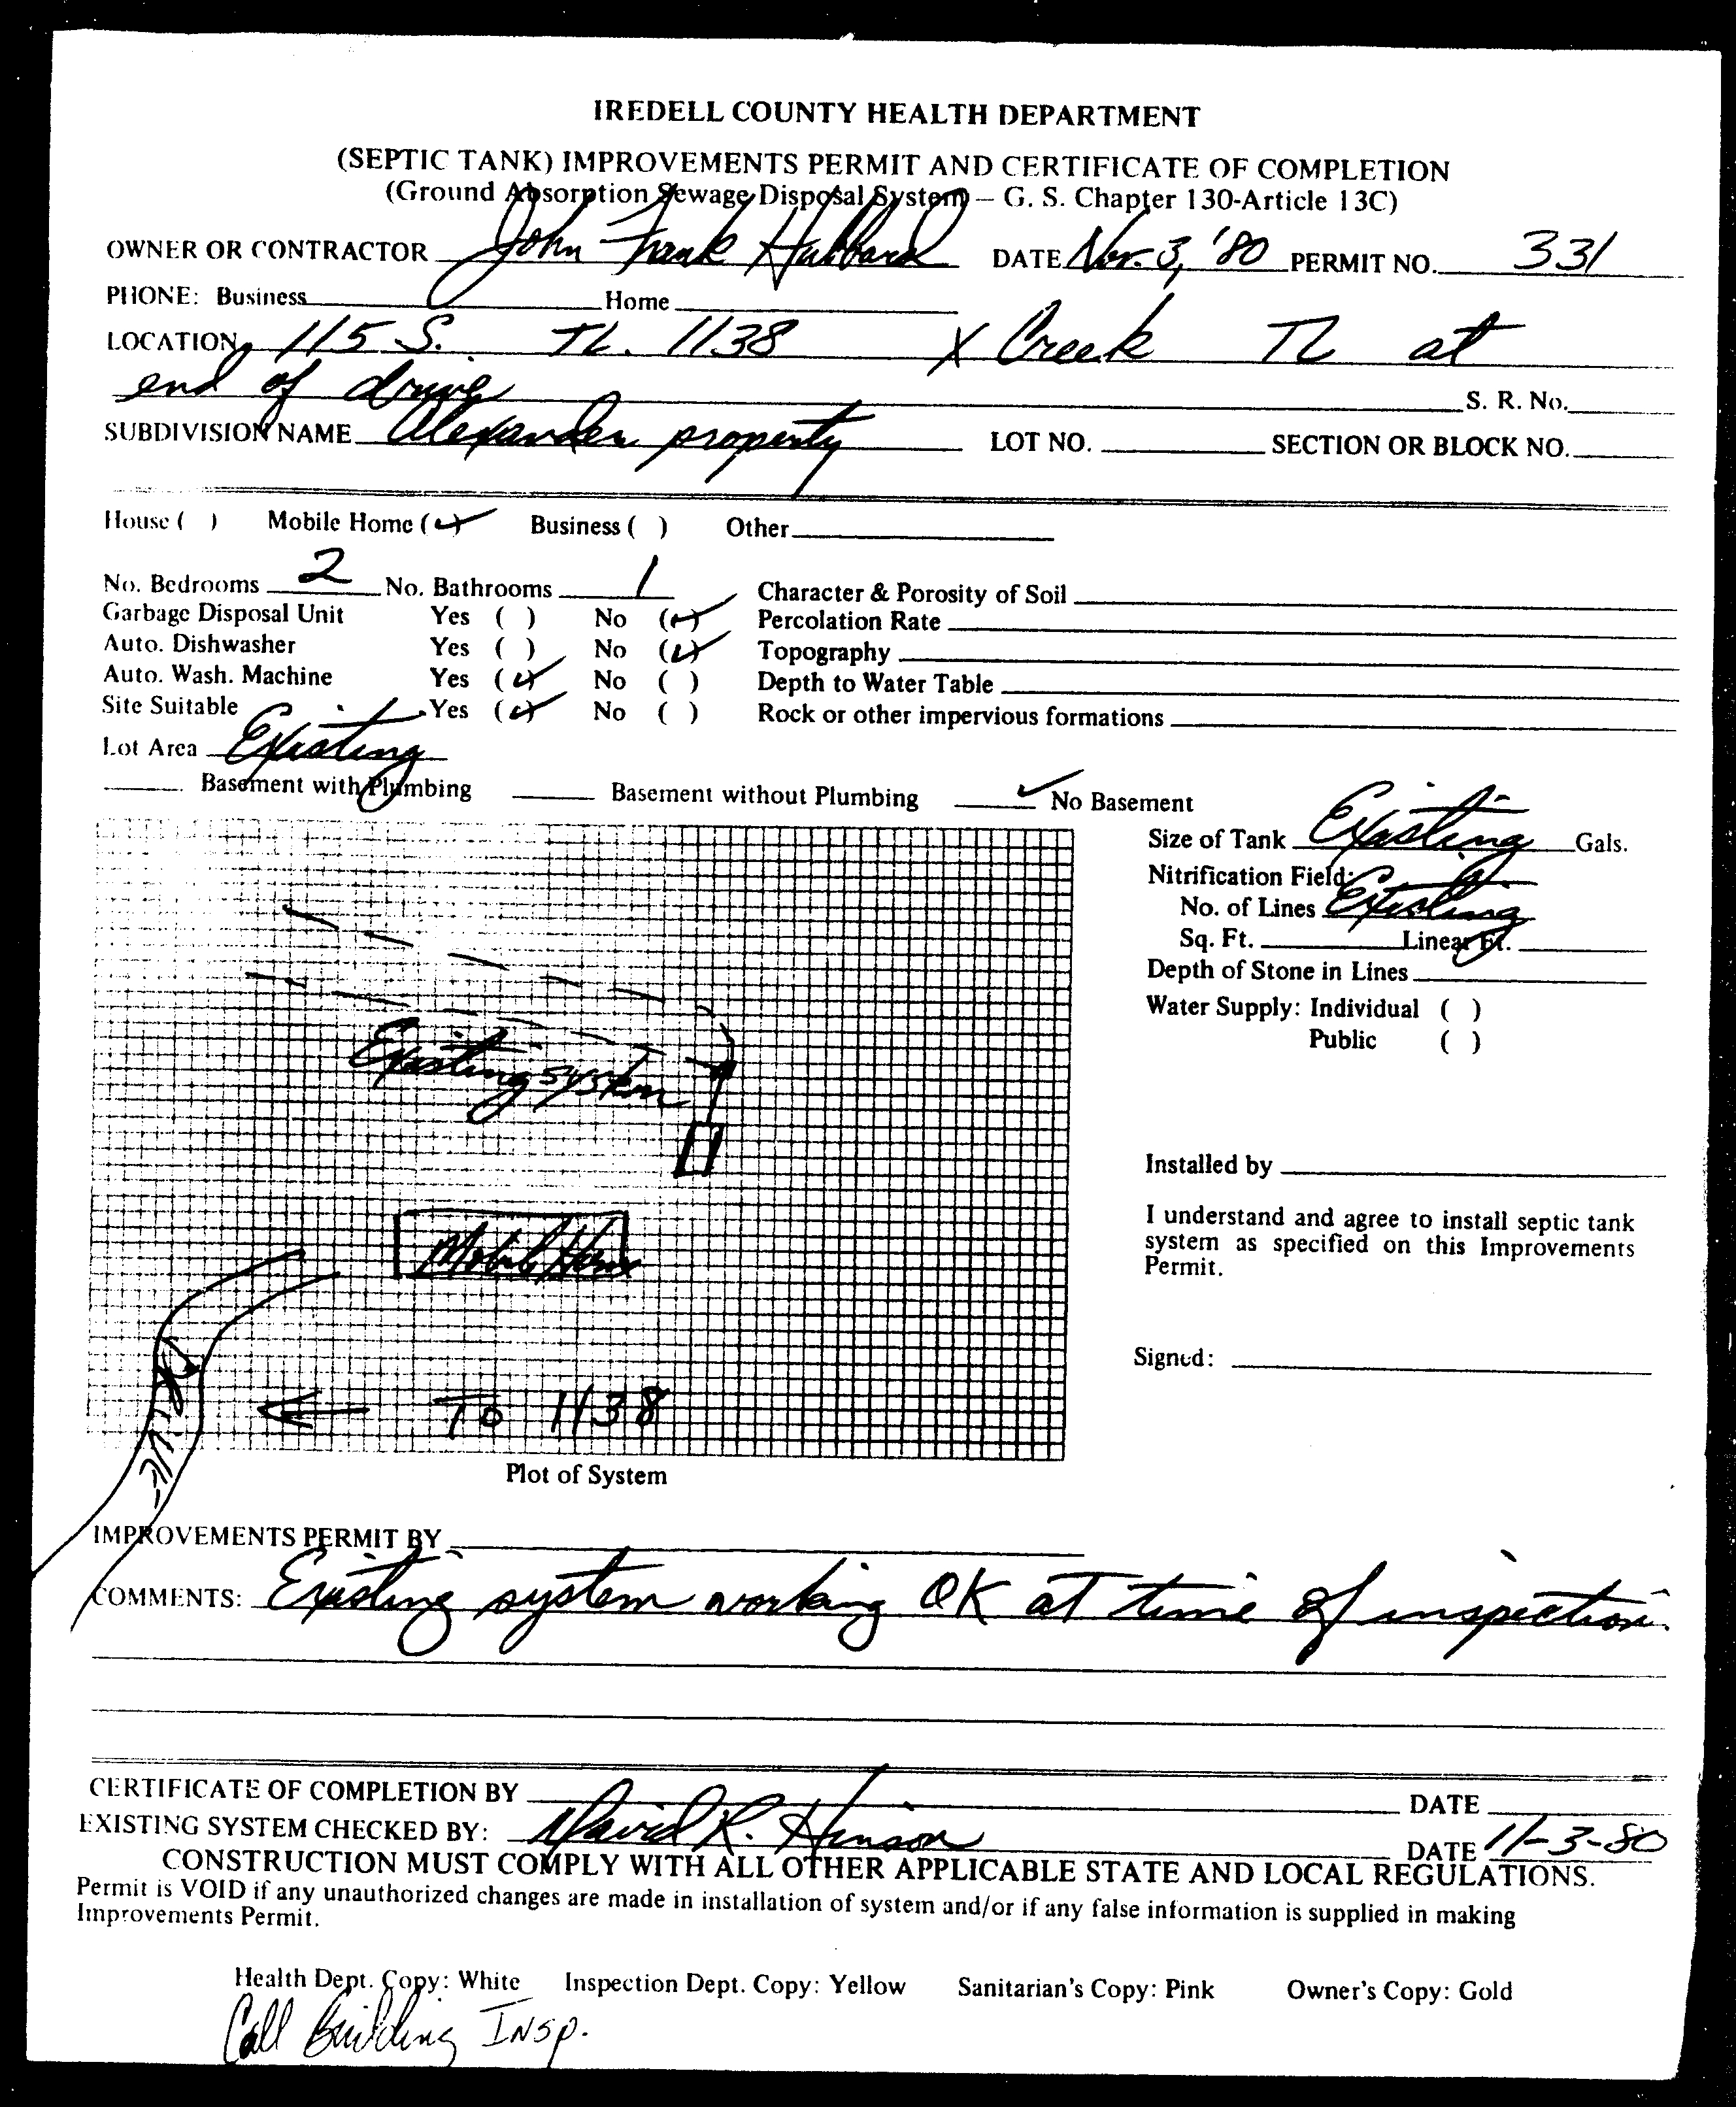 IREDELL COUNTY HEALTH DEPARTMENT
(SEPTIC TANK) IMPROVEMENTS PERMIT AND CERTIFICATE OF COMPLETION
(Ground Absorption Sewage Disposal System – G. S. Chapter 130-Article 13C)
OWNER OR CONTRACTOR John Frank Hubbard DATE Nov. 3, '80 PERMIT NO. 331
PHONE: Business Home
LOCATION 115 S. TL. 1138 X Creek TL at
end of drive S. R. No.
SUBDIVISION NAME Alexander property LOT NO. SECTION OR BLOCK NO.
House ( ) Mobile Home (✓) Business ( ) Other
No. Bedrooms 2 No. Bathrooms 1 Character & Porosity of Soil
Garbage Disposal Unit Yes ( ) No (✓) Percolation Rate
Auto. Dishwasher Yes ( ) No (✓) Topography
Auto. Wash. Machine Yes (✓) No ( ) Depth to Water Table
Site Suitable Yes (✓) No ( ) Rock or other impervious formations
Lot Area Existing
Basement with Plumbing Basement without Plumbing ✓ No Basement
Size of Tank Existing Gals.
Nitrification Field:
No. of Lines Existing
Sq. Ft. Linear Ft.
Depth of Stone in Lines
Water Supply: Individual ( )
Public ( )
Existing system
Mobile Home
Drive
← To 1138
Plot of System
Installed by
I understand and agree to install septic tank
system as specified on this Improvements
Permit.
Signed:
IMPROVEMENTS PERMIT BY
COMMENTS: Existing system working OK at time of inspection.
CERTIFICATE OF COMPLETION BY DATE
EXISTING SYSTEM CHECKED BY: David R. Hinson DATE 11-3-80
CONSTRUCTION MUST COMPLY WITH ALL OTHER APPLICABLE STATE AND LOCAL REGULATIONS.
Permit is VOID if any unauthorized changes are made in installation of system and/or if any false information is supplied in making
Improvements Permit.
Health Dept. Copy: White Inspection Dept. Copy: Yellow Sanitarian's Copy: Pink Owner's Copy: Gold
Call Building Insp.